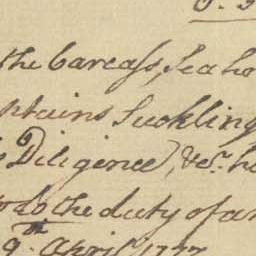 the Carcass, Seaho
ptains Suckling
Diligence, &c.
to do the duty of an
9th April 1777